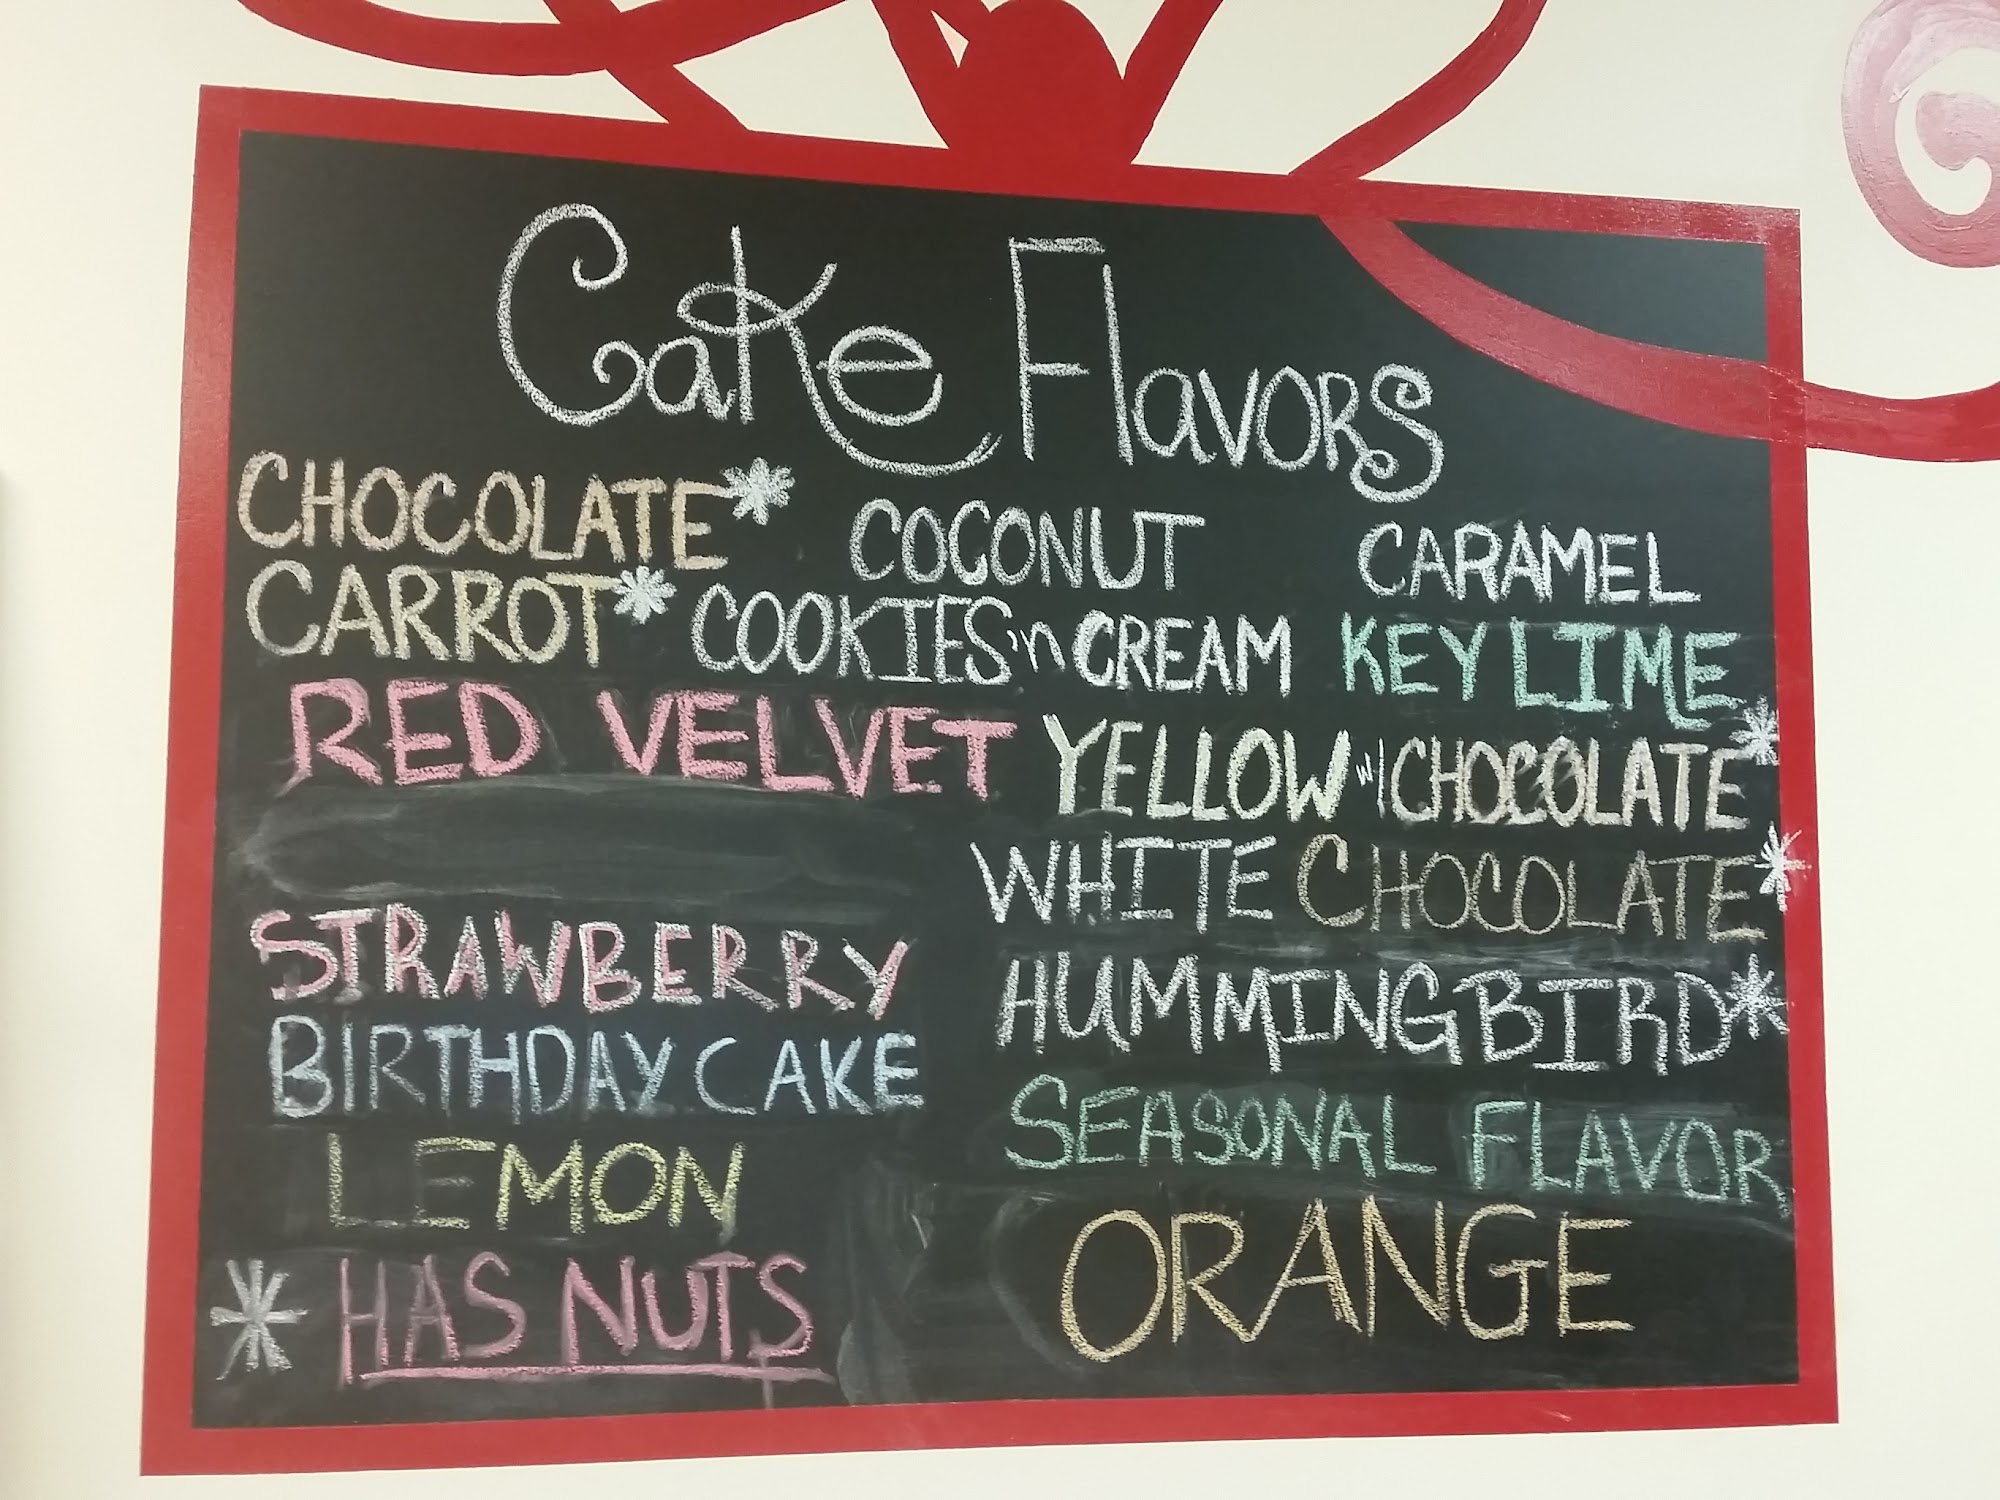 Cake Flavors
CHOCOLATE* COCONUT CARAMEL
CARROT* COOKIES'n CREAM KEY LIME
RED VELVET YELLOW w/ CHOCOLATE*
WHITE CHOCOLATE*
STRAWBERRY HUMMINGBIRD*
BIRTHDAY CAKE SEASONAL FLAVOR
LEMON ORANGE
* HAS NUTS